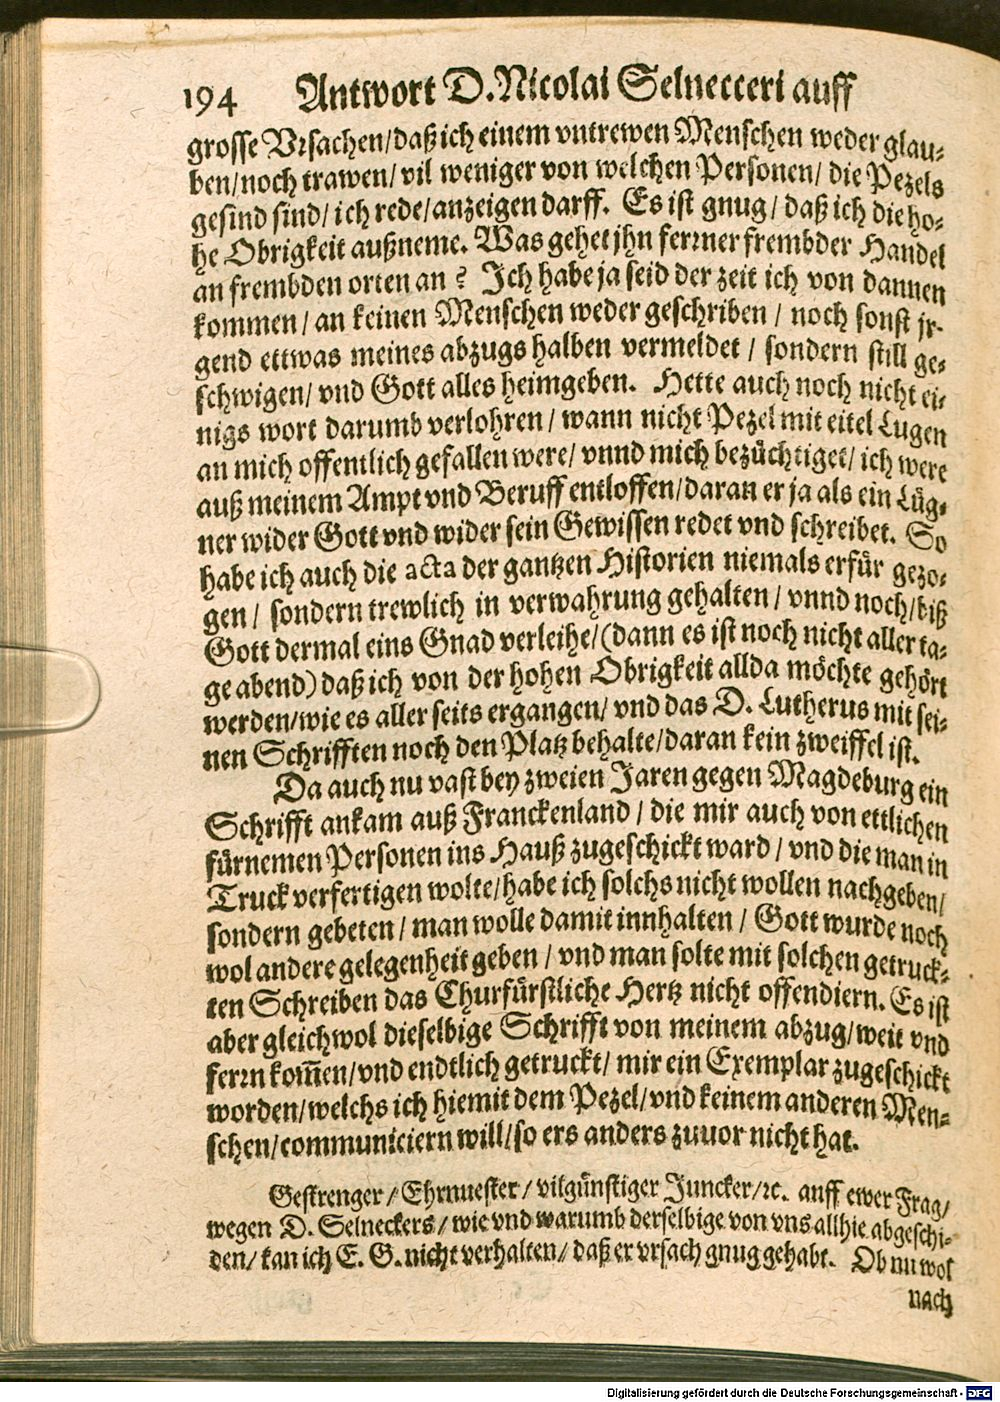 194 Antwort D. Nicolai Selnecceri auff
grosse Vrsachen/daß ich einem vntrewen Menschen weder glau-
ben/noch trawen/vil weniger von welchen Personen/ die Pezels
gesind sind/ ich rede/anzeigen darff. Es ist gnug/ daß ich die ho-
he Obrigkeit außneme. Was gehet jhn ferrner frembder Handel
an frembden orten an? Ich habe ja seid der zeit ich von dannen
kommen/ an keinen Menschen weder geschriben/ noch sonst jr-
gend ettwas meines abzugs halben vermeldet/ sondern still ge-
schwigen/ vnd Gott alles heimgeben. Hette auch noch nicht ei-
nigs wort darumb verlohren/ wann nicht Pezel mit eitel Lugen
an mich offentlich gefallen were/ vnnd mich bezüchtiget/ ich were
auß meinem Ampt vnd Beruff entloffen/daran er ja als ein Lüg-
ner wider Gott vnd wider sein Gewissen redet vnd schreibet. So
habe ich auch die acta der gantzen Historien niemals erfür gezo-
gen/ sondern trewlich in verwahrung gehalten/ vnnd noch/biß
Gott dermal eins Gnad verleihe/(dann es ist noch nicht aller ta-
ge abend) daß ich von der hohen Obrigkeit allda möchte gehört
werden/wie es aller seits ergangen/ vnd das D. Lutherus mit sei-
nen Schrifften noch den Platz behalte/daran kein zweiffel ist.
Da auch nu vast bey zweien Jaren gegen Magdeburg ein
Schrifft ankam auß Franckenland/ die mir auch von ettlichen
fürnemen Personen ins Hauß zugeschickt ward/ vnd die man in
Truck verfertigen wolte/habe ich solchs nicht wollen nachgeben/
sondern gebeten/ man wolle damit innhalten/ Gott wurde noch
wol andere gelegenheit geben/ vnd man solte mit solchen getruck-
ten Schreiben das Churfürstliche Hertz nicht offendiern. Es ist
aber gleichwol dieselbige Schrifft von meinem abzug/weit vnd
ferrn kom̃en/vnd endtlich getruckt/ mir ein Exemplar zugeschickt
worden/welchs ich hiemit dem Pezel/vnd keinem anderen Men-
schen/communiciern will/so ers anders zuuor nicht hat.
Gestrenger/ Ehrnuester/ vilgünstiger Juncker/ꝛc. auff ewer Frag/
wegen D. Selneckers/ wie vnd warumb derselbige von vns allhie abgeschi-
den/ kan ich E. G. nicht verhalten/ daß er vrsach gnug gehabt. Ob nu wol
nach
Digitalisierung gefördert durch die Deutsche Forschungsgemeinschaft - DFG